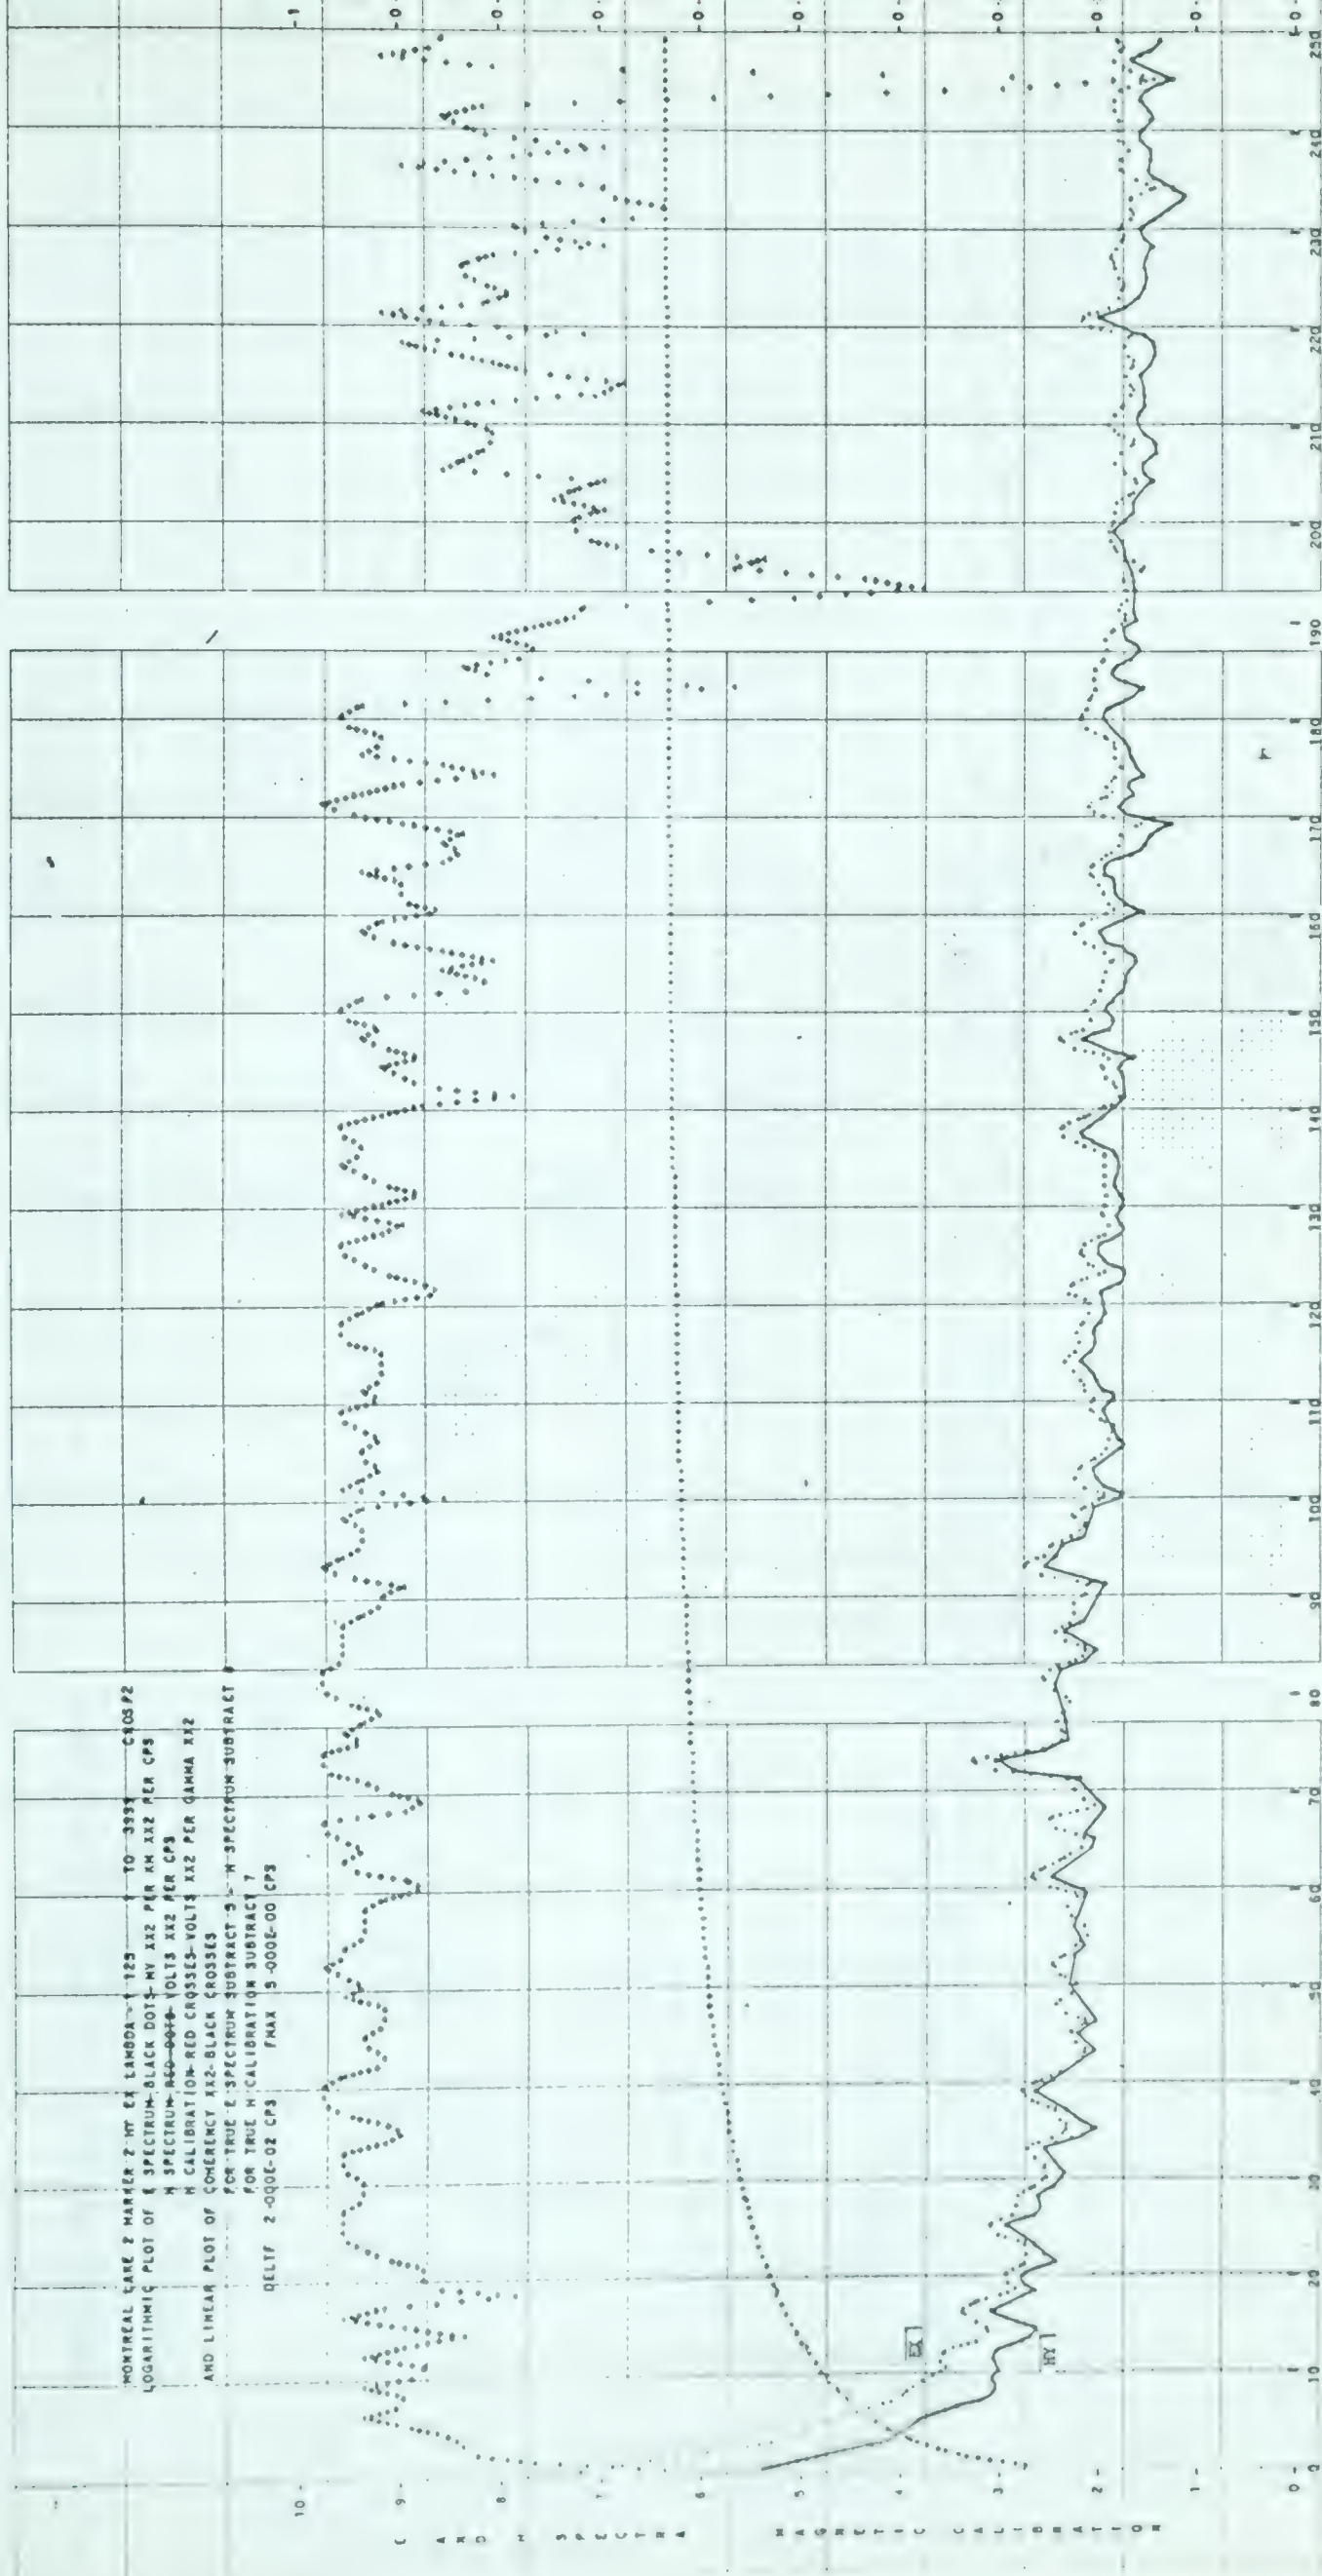 MONTREAL LAKE 2 MARKER 2 HY EX LAMBDA 1 125 1 TO 3999 CROSP2
LOGARITHMIC PLOT OF E SPECTRUM-BLACK DOTS-MV XX2 PER KM XX2 PER CPS
H SPECTRUM-RED DOTS-VOLTS XX2 PER CPS
H CALIBRATION-RED CROSSES-VOLTS XX2 PER GAMMA XX2
AND LINEAR PLOT OF COHERENCY XX2-BLACK CROSSES
FOR TRUE E SPECTRUM SUBTRACT 5 H SPECTRUM SUBTRACT
FOR TRUE H CALIBRATION SUBTRACT 7
DELTF 2.000E-02 CPS FMAX 5.000E-00 CPS
10-
9-
7-
6-
5-
4-
3-
2-
1-
0-
E AND H SPECTRA MAGNETIC CALIBRATION
EX
HY
0 10 20 30 40 50 60 70 80 90 100 110 120 130 140 150 160 170 180 190 200 210 220 230 240 250